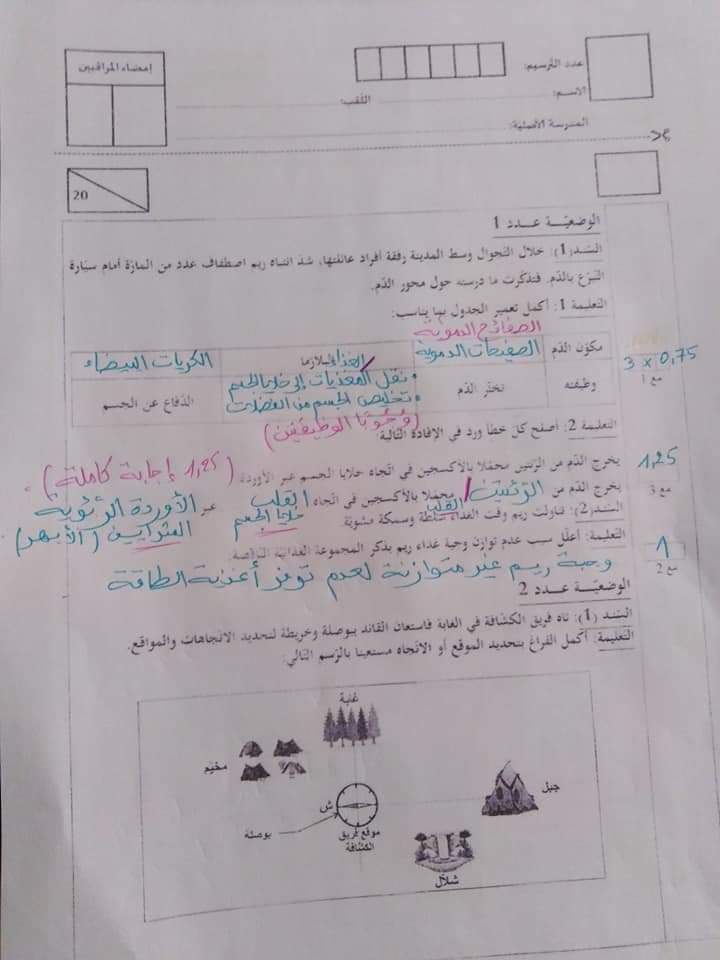 عدد الترسيم:
إمضاء المراقبين
الاسم: اللقب:
المدرسة الأصلية:
20
الوضعيّة عـدد 1
السّند(1): خلال التجوال وسط المدينة رفقة أفراد عائلتها، شدّ انتباه ريم اصطفاف عدد من المارّة أمام سيّارة
التبرّع بالدّم. فتذكّرت ما درسته حول محور الدّم.
التعليمة 1: أكمل تعمير الجدول بما يناسب:
الصفائح الدموية
مكوّن الدّم الصفيحات الدموية البلازما الكريات البيضاء
وظيفته تخثّر الدّم • نقل المغذيات إلى خلايا الجسم الدّفاع عن الجسم
• تخليص الجسم من الفضلات
(وجوبا الوظيفتين)
3 × 0,75
مع 1
التعليمة 2: أصلح كلّ خطأ ورد في الإفادة التالية:
يخرج الدّم من الرئتين محمّلا بالأكسجين في اتّجاه خلايا الجسم عبر الأوردة (1,25 إجابة كاملة)
1,25
مع 3
يخرج الدّم من الرئتين / القلب محمّلا بالأكسجين في اتّجاه القلب خلايا الجسم عبر الأوردة الرئوية
الشرايين (الأبهر)
السّند(2): تناولت ريم وقت الغداء سلطة وسمكة مشويّة
التعليمة: أعلّل سبب عدم توازن وجبة غداء ريم بذكر المجموعة الغذائية الناقصة.
وجبة ريم غير متوازنة لعدم توفر أغذية الطاقة
1
مع 2
الوضعيّة عدد 2
السّند (1): تاه فريق الكشّافة في الغابة فاستعان القائد ببوصلة وخريطة لتحديد الاتجاهات والمواقع.
التعليمة: أكمل الفراغ بتحديد الموقع أو الاتجاه مستعينا بالرّسم التالي:
غابة
مخيّم
جبل
ش
بوصلة
موقع فريق
الكشّافة
شلّال